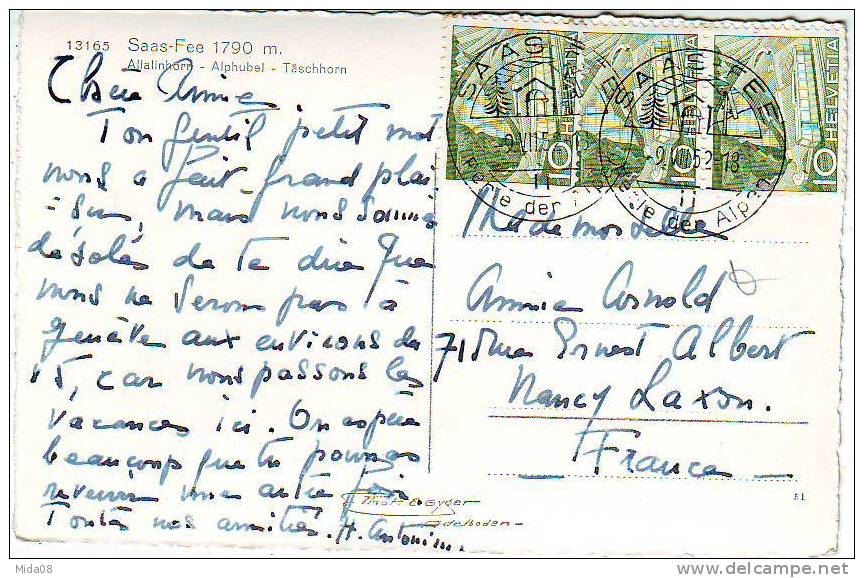 13165 Saas-Fee 1790 m.
Allalinhorn - Alphubel - Täschhorn
Chère Annie
Ton gentil petit mot
nous a fait grand plai
-sir, mais nous sommes
désolés de te dire que
nous ne serons pas à
Genève aux environs du
15, car nous passons les
vacances ici. On espère
beaucoup que tu pourras
revenir une autre fois.
Toutes nos amitiés. H. Antonin.
SAAS-FEE
Perle der Alpen
HELVETIA
10
SAAS-FEE
9.VIII.52.18
Perle der Alpen
HELVETIA
10
HELVETIA
10
Mademoiselle
Annie Arnold
71 rue Ernest Albert
Nancy Laxou.
France
Phot. E. Gyger
Adelboden
51
Mida08
delcampe.net